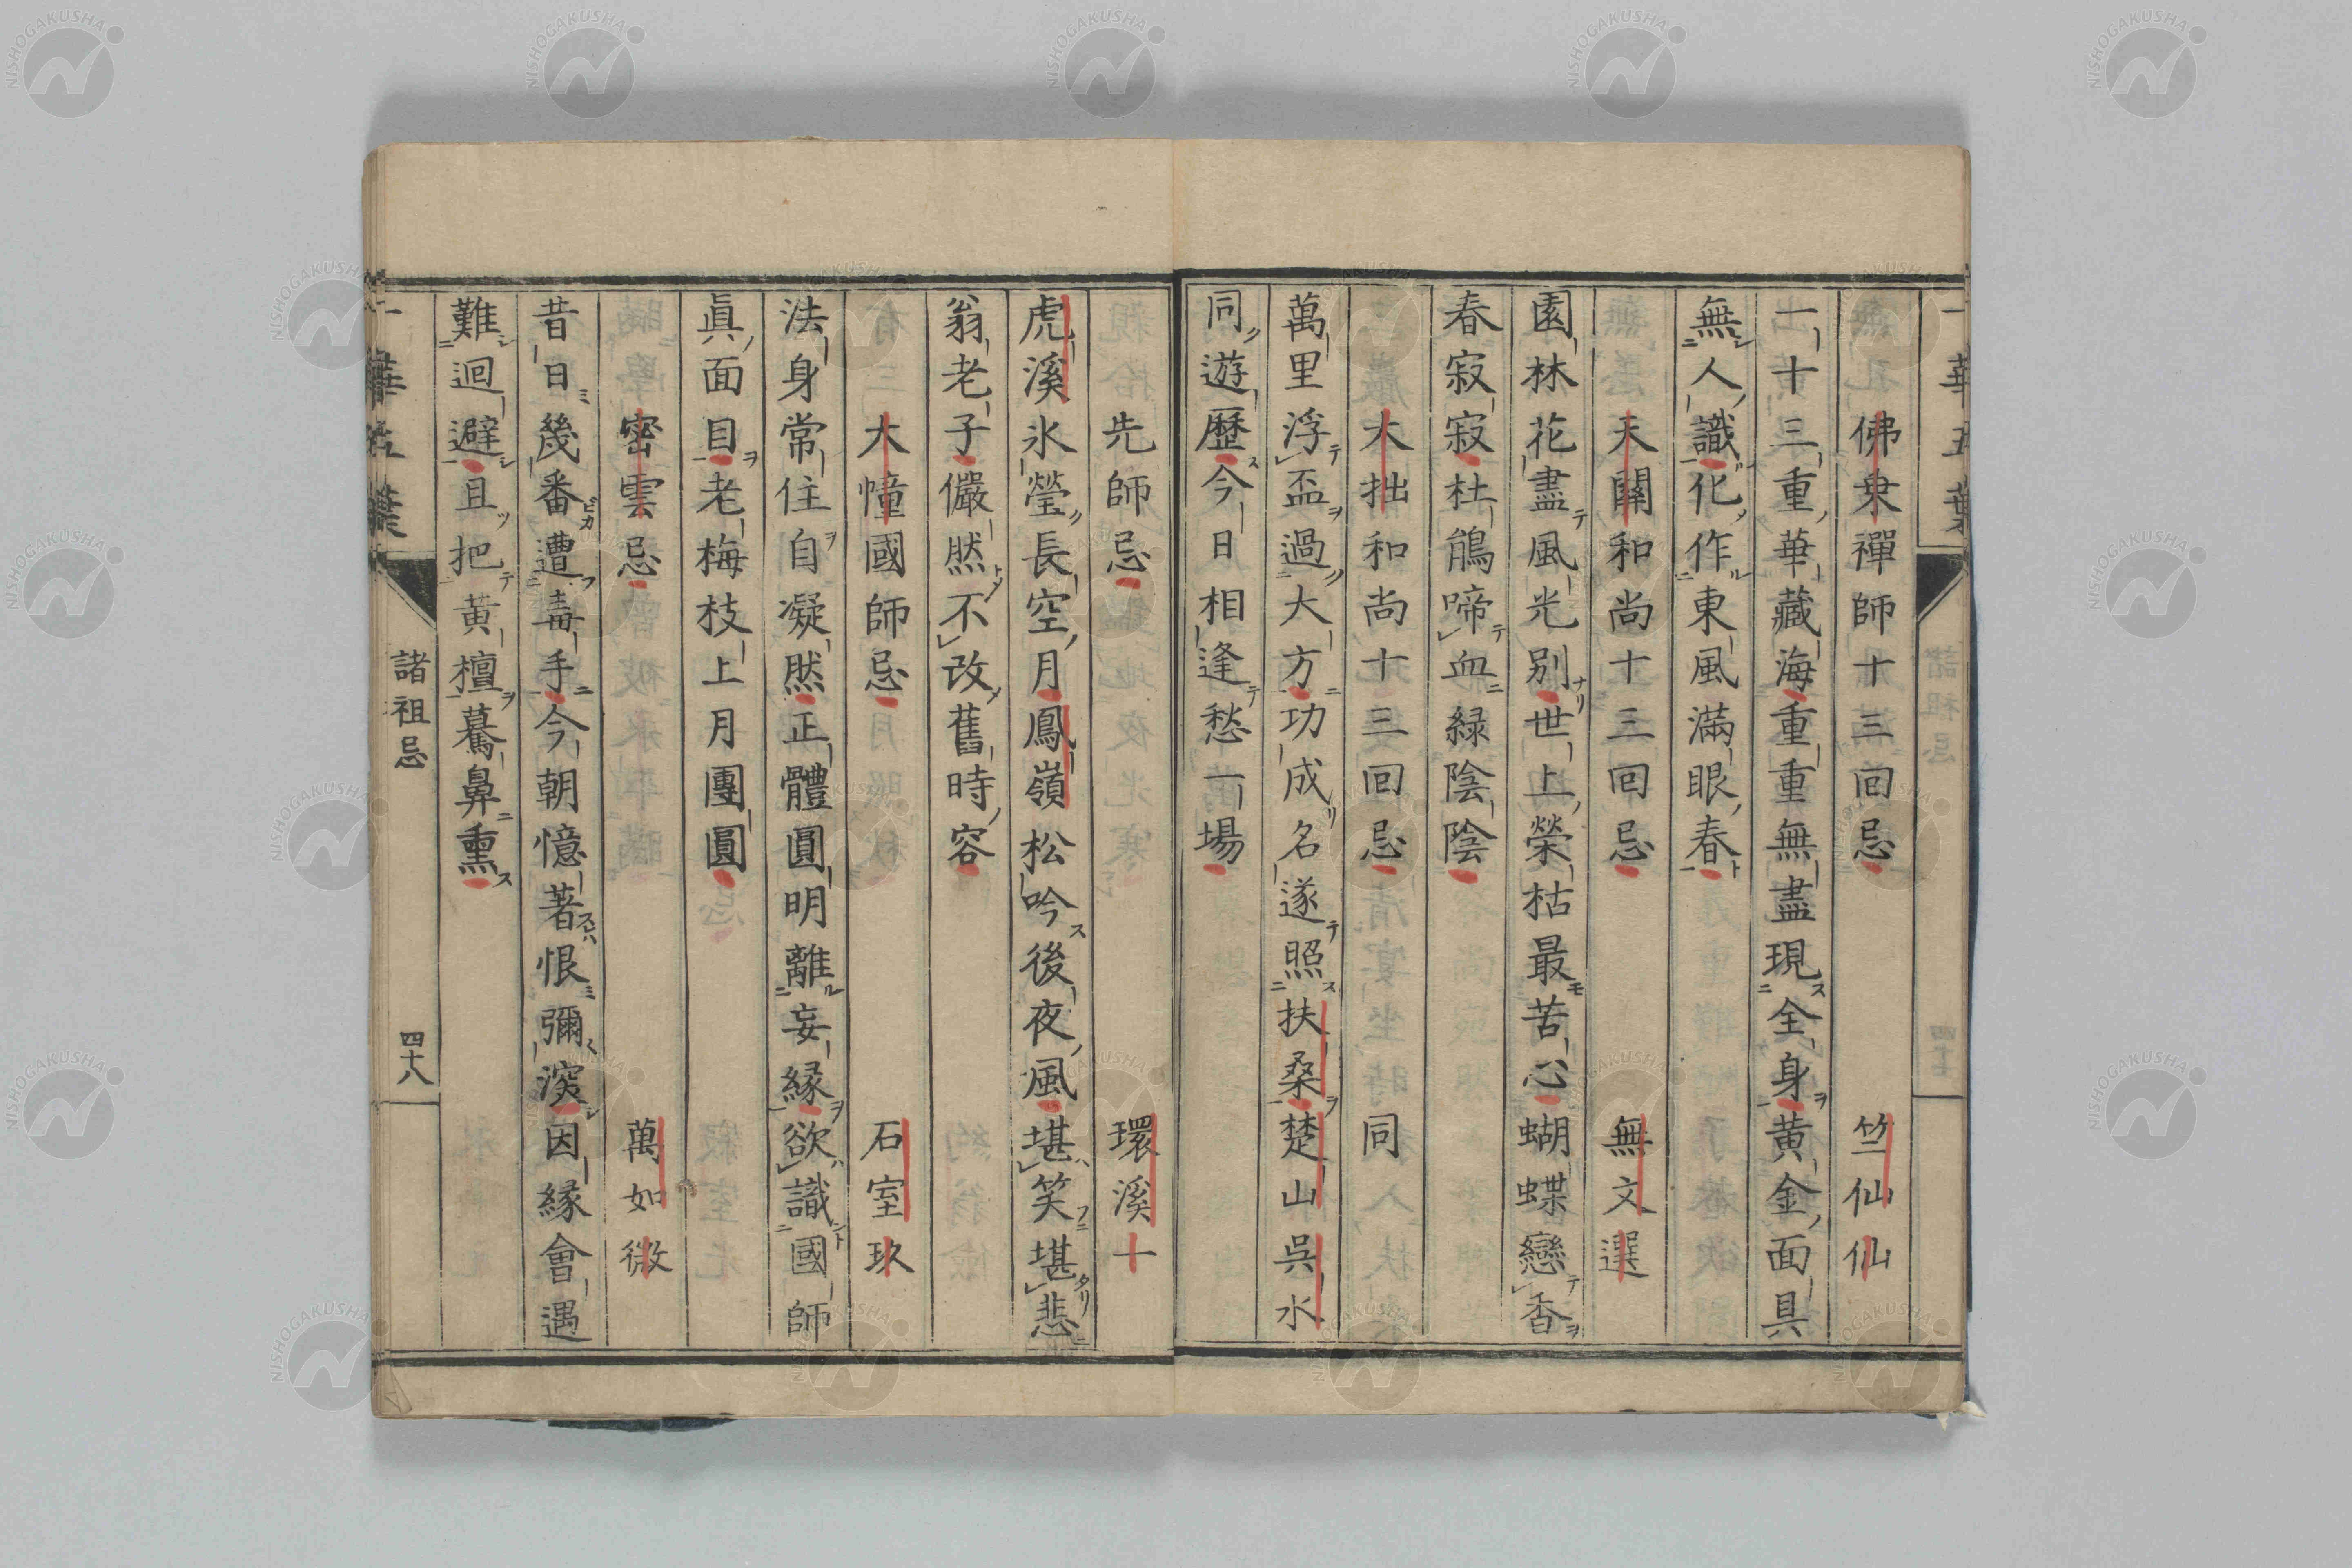 佛泉禪師十三囘忌 竺仙仙
一十三重華藏海重重無盡現全身黄金面具
無人識化作東風滿眼春
天關和尚十三囘忌 無文選
園林花盡風光別世上榮枯最苦心蝴蝶戀香
春寂寂杜鵑啼血緑陰陰
大拙和尚十三囘忌 同
萬里浮盃過大方功成名遂照扶桑楚山呉水
同遊歷今日相逢愁一場
先師忌 環溪十
虎溪氷瑩長空月鳳嶺松吟後夜風堪笑堪悲
翁老子儼然不改舊時容
大幢國師忌 石室玖
法身常住自凝然正體圓明離妄縁欲識國師
眞面目老梅枝上月團圓
密雲忌 萬如微
昔日幾番遭毒手今朝憶著恨彌深因縁會遇
難迴避且把黄檀驀鼻熏
諸祖忌
四十八